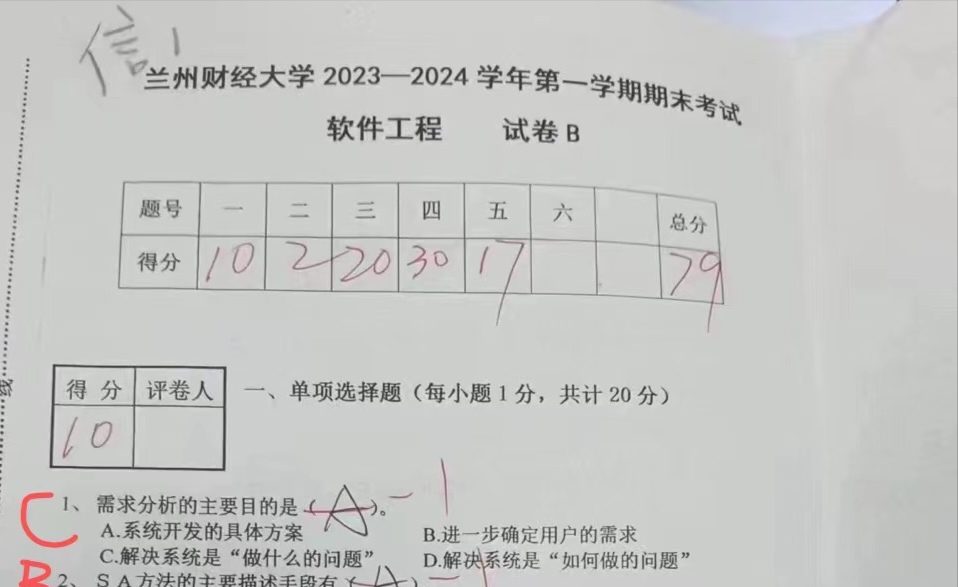 信1
兰州财经大学 2023—2024 学年第一学期期末考试
软件工程 试卷 B
题号 一 二 三 四 五 六 总分
得分 10 2 20 30 17 79
得 分 评卷人
10
一、单项选择题（每小题 1 分，共计 20 分）
C 1、 需求分析的主要目的是（A）。 -1
A.系统开发的具体方案 B.进一步确定用户的需求
C.解决系统是“做什么的问题” D.解决系统是“如何做的问题”
B 2、 S A 方法的主要描述手段有（A） -1
线